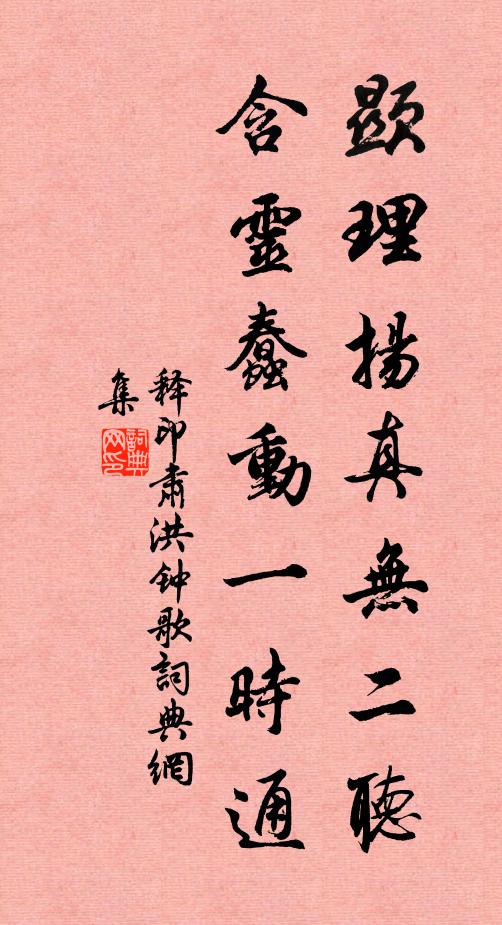 顯理揚真無二聽
含靈蠢動一時通
释印肃洪钟歌詞典網
集
詞典
网印